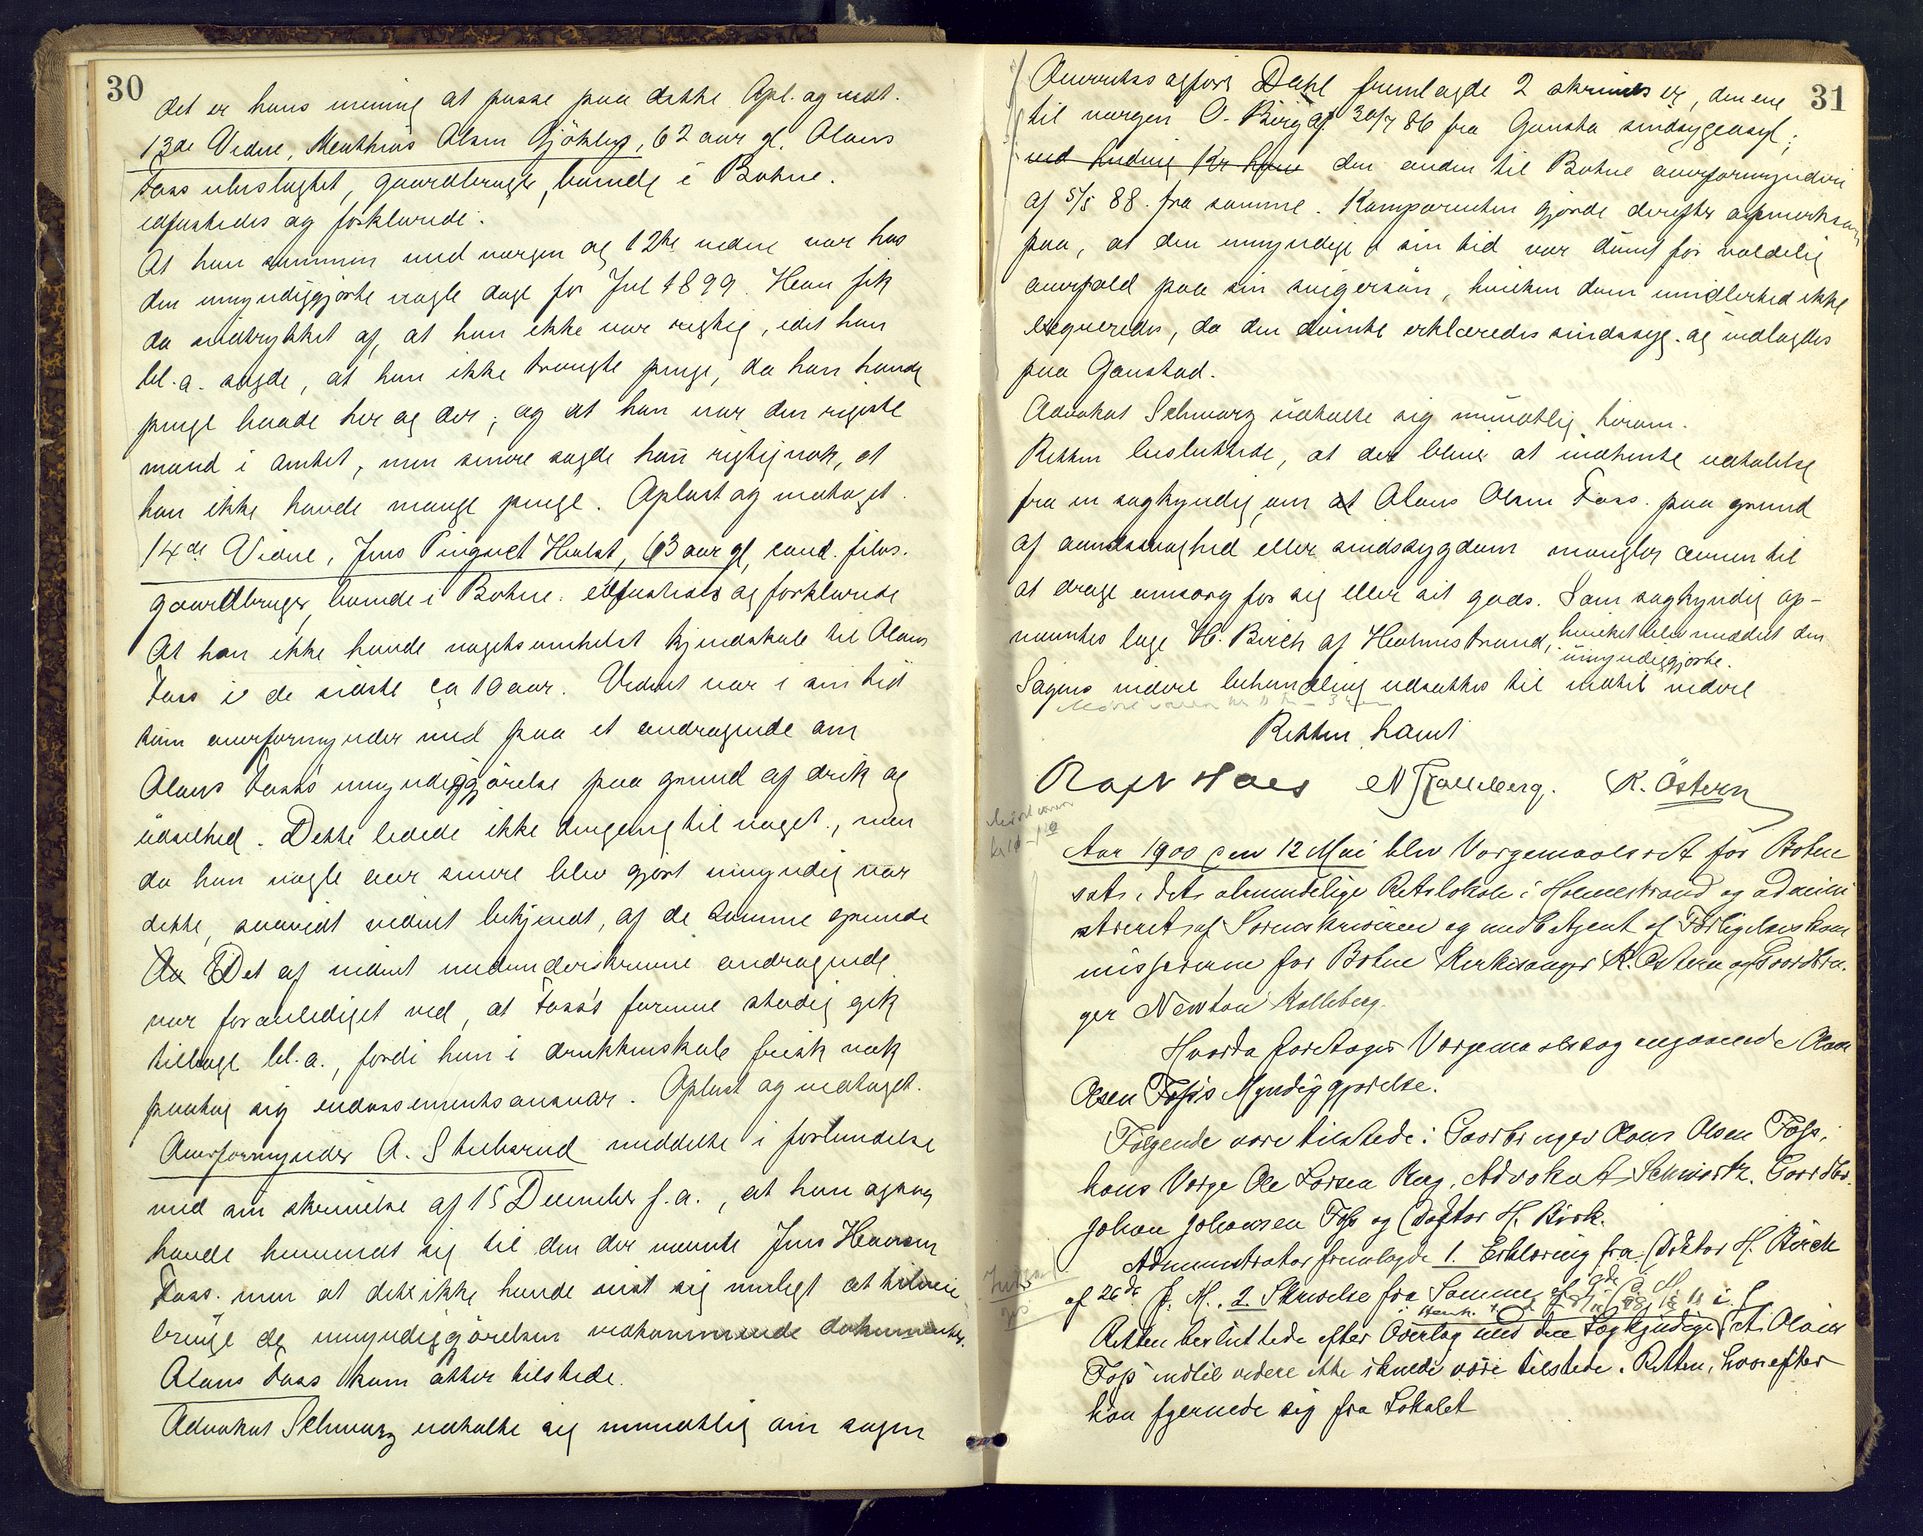 30
det er hans mening at passe paa dette. Opl. og vedt.
13de Vidne, Matthias Olsen Gjöklep, 62 aar gl, Olaus
Foss ubeslægtet, gaardbruger, boende i Bothne.
edfæstedes og forklarede:
At han sammen med værgen og 12te vidne var hos
den umyndiggjorte nogle dage før Jul 1899. Han fik
da indtrykket af, at han ikke var rigtig, idet han
bl.a. sagde, at han ikke trængte penge, da han havde
penge baade her og der, og at han var den rigeste
mand i amtet, men senere sagde han rigtignok, at
han ikke havde mange penge. Oplæst og vedtaget.
14de Vidne, Jens Pingnet Hulst, 63 aar gl, cand. filos.
gaardbruger, boende i Bothne. edfæstedes og forklarede
At han ikke havde nogetsomhelst kjendskab til Olaus
Foss i de sidste ca 10 aar. Vidnet var i sin tid
som overformynder med paa et andragende om
Olaus Foss's umyndiggjörelse paa grund af drik og
ödselhed. Dette ledede ikke dengang til noget, men
da han nogle aar senere blev gjort umyndig var
dette, saavidt vidnet bekjendt, af de samme grunde
Det af vidnet medunderskrevne andragende
var foranlediget ved, at Foss's formue stadig gik
tilbage bl.a., fordi han i drukkenskab frisk væk
paatog sig endossementsansvar. Oplæst og vedtaget.
Overformynder A. Stubsrud meddelte i forbindelse
med sin skrivelse af 15 December f.a., at han ogsaa
havde henvendt sig til den der nævnte Jens Hansen
Foss. men at det ikke havde vist sig muligt at tilveie
bringe de umyndiggjörelsen vedkommende dokumenter.
Olaus Foss kom atter tilstede.
Advokat Schwarz udtalte sig mundtlig om sagen
31
Overretssagförer Dahl fremlagde 2 skrivelser, den ene
til værgen O. Berg af 30/7 86 fra Gaustad sindsygeasyl;
den anden til Bothne overformynderi
af 5/5 88. fra samme. Komparenten gjorde derefter opmerksom
paa, at den umyndige i sin tid var dömt for voldelig
overfald paa sin svigersön, hvilken dom imidlertid ikke
exqueredes, da den dömte erklæredes sindssyg og indlagdes
paa Gaustad.
Advokat Schwarz udtalte sig mundtlig herom.
Retten besluttede, at der bliver at indhente udtalelse
fra en sagkyndig, om at Olaus Olsen Foss. paa grund
af aandssvaghed eller sindssygdom mangler ævnen til
at drage omsorg for sig eller sit gods. Som sagkyndig op-
nævntes læge H. Birch af Holmestrand, hvilket blev meddelt den
umyndiggjorte.
Sagens videre behandling udsattes til indtil videre
Retten hævet
N Kalleberg. K. Östern
Aar 1900 den 12 Mai blev Værgemaalsret for Bothne
sat i det almindelige Retslokale i Holmestrand og admini
streret af Sorenskriveren og med betjent af Forligelseskom
missærerne for Bothne Kirkesanger K. Östern og Gaardbru-
ger Newton Kalleberg.
Hvorda foretoges Værgemaalssag angaaende Olaus
Olsen Foss's Myndiggjørelse.
Følgende vare tilstede: Gaardbruger Olaus Olsen Foss,
hans Værge Ole Larsen Berg, Advokat Schwartz. Gaardbr.
Johan Johansen Foss og Doktor H. Birk.
Administrator fremlagde 1. Erklæring fra Doktor H. Birch
af 26de f. M., 2 Skrivelse fra Samme af
Retten besluttede efter Overlæg med den Sagkyndige at Olaus
Foss indtil videre ikke skulde være tilstede i Retten, hvorefter
han fjernede sig fra Lokalet